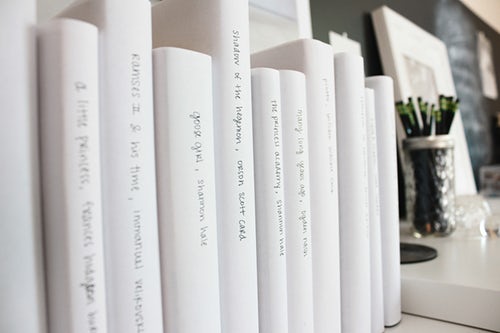 a little princess, frances hodgson bur
Ramses II & his time, immanuel velikovsky
goose girl, shannon hale
shadow of the hegemon, orson scott card
the princess academy, shannon hale
many long years ago, ogden nash